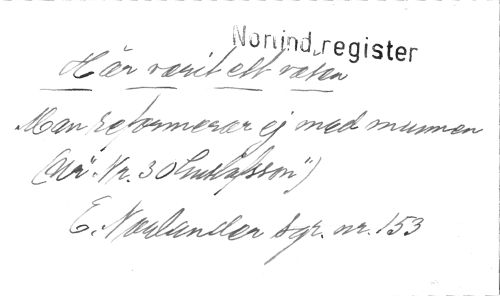 Norlind, register
Här varit ett väsen
Man reformerar ej med munnen
(Ur "Nr. 30 Gustafsson")
E. Norlander sgr. nr. 153